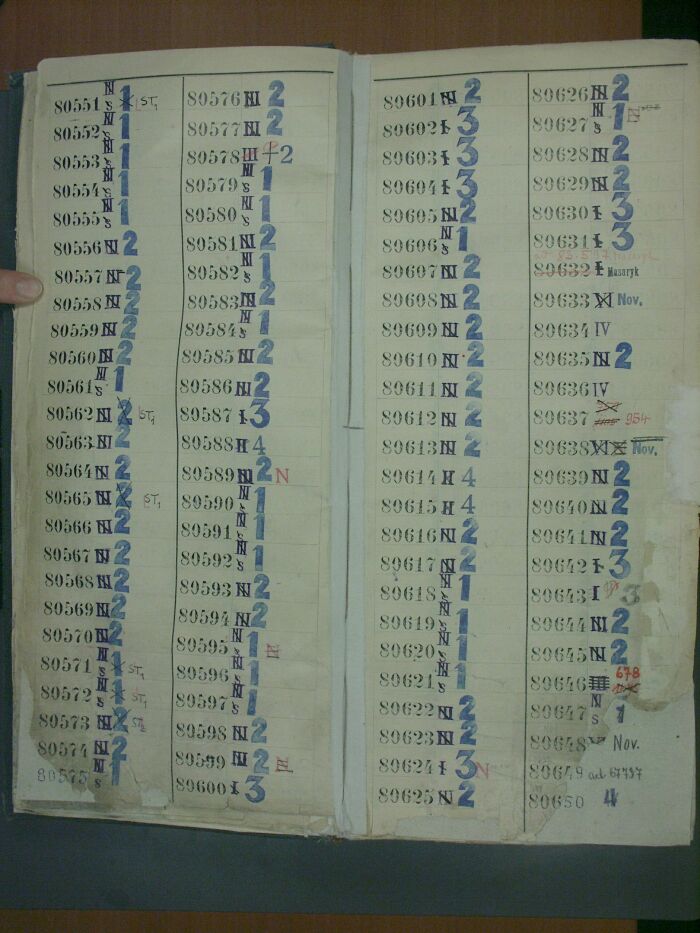 80551 N S 1 ST1
80552 N S 1
80553 N S 1
80554 N S 1
80555 N S 1
80556 N 2
80557 N 2
80558 N 2
80559 N 2
80560 N 2
80561 N S 1
80562 N 2 ST1
80563 N 2
80564 N 2
80565 N 2 ST1
80566 N 2
80567 N 2
80568 N 2
80569 N 2
80570 N 2
80571 N S 1 ST1
80572 N S 1 ST1
80573 N 2 ST2
80574 N 2
80575 N S 1
80576 N 2
80577 N 2
80578 III +2
80579 N S 1
80580 N S 1
80581 N 2
80582 N S 1
80583 N 2
80584 N S 1
80585 N 2
80586 N 2
80587 I 3
80588 H 4
80589 N 2 N
80590 N S 1
80591 N S 1
80592 N S 1
80593 N 2
80594 N 2
80595 N S 1
80596 N S 1
80597 N S 1
80598 N 2
80599 N 2
80600 I 3
80601 N 2
80602 I 3
80603 I 3
80604 I 3
80605 N 2
80606 N S 1
80607 N 2
80608 N 2
80609 N 2
80610 N 2
80611 N 2
80612 N 2
80613 N 2
80614 H 4
80615 H 4
80616 N 2
80617 N 2
80618 N S 1
80619 N S 1
80620 N S 1
80621 N S 1
80622 N 2
80623 N 2
80624 I 3 N
80625 N 2
80626 N 2
80627 N S 1
80628 N 2
80629 N 2
80630 I 3
80631 I 3
80632 I Masaryk
80633 VI Nov.
80634 IV
80635 N 2
80636 IV
80637 954
80638 VI Nov.
80639 N 2
80640 N 2
80641 N 2
80642 I 3
80643 I 3
80644 N 2
80645 N 2
678
80646
80647 N S 1
80648 Nov.
80649
80650 4